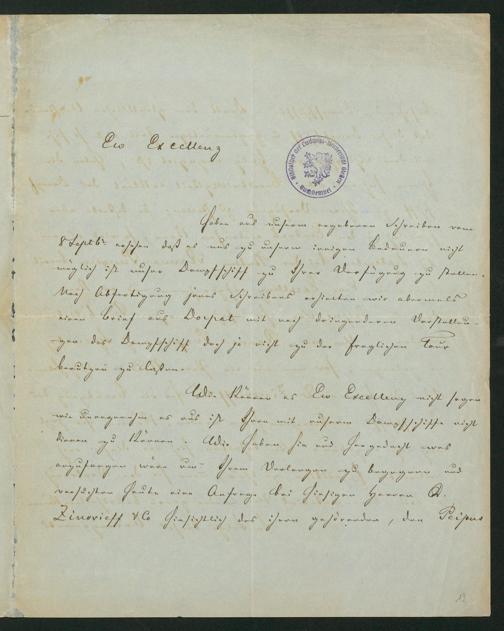 Ew Excellenz
Haben aus unserm ergebenen Schreiben vom
8 Septbr ersehen daß es uns zu unserm innigen Bedauern nicht
möglich ist unser Dampfschiff zu Ihrer Verfügung zu stellen.
Nach Abfertigung jenes Schreibens erhielten wir abermals
einen Brief aus Dorpat mit noch dringenderen Vorstellun-
gen das Dampfschiff doch ja nicht zu der fraglichen Tour
benutzen zu laßen.
Wir können es Ew Excellenz nicht sagen
wie unangenehm es uns ist Ihnen mit unserm Dampfschiffe nicht
dienen zu können. Wir haben hin und hergedacht was
anzufangen wäre um Ihrem Verlangen zu begegnen und
versuchten heute eine Anfrage bei hiesigen Herren
Zinovieff & Co hinsichtlich des ihnen gehörenden, den Peipus